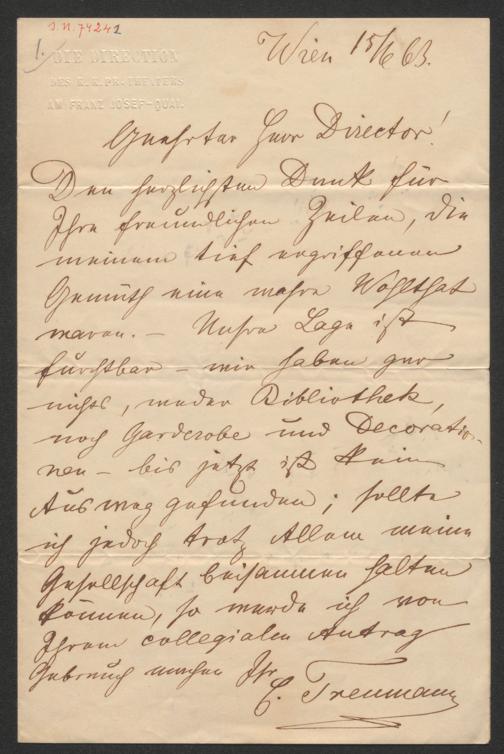 I.N. 74242
1.
DIE DIRECTION
DES K. K. PR. THEATERS
AM FRANZ JOSEF-QUAI.
Wien 15/6 63.
Geehrter Herr Director!
Den herzlichsten Dank für
Ihre freundlichen Zeilen, die
meinem tief ergriffenen
Gemüth eine wahre Wohlthat
waren. – Unsre Lage ist
furchtbar – wir haben gar
nichts, weder Bibliothek,
noch Garderobe und Decoratio-
nen – bis jetzt ist kein
Ausweg gefunden; sollte
ich jedoch trotz Allem meine
Gesellschaft beisammen halten
können, so werde ich von
Ihrem collegialen Antrag
Gebrauch machen Ihr
C. Treumann